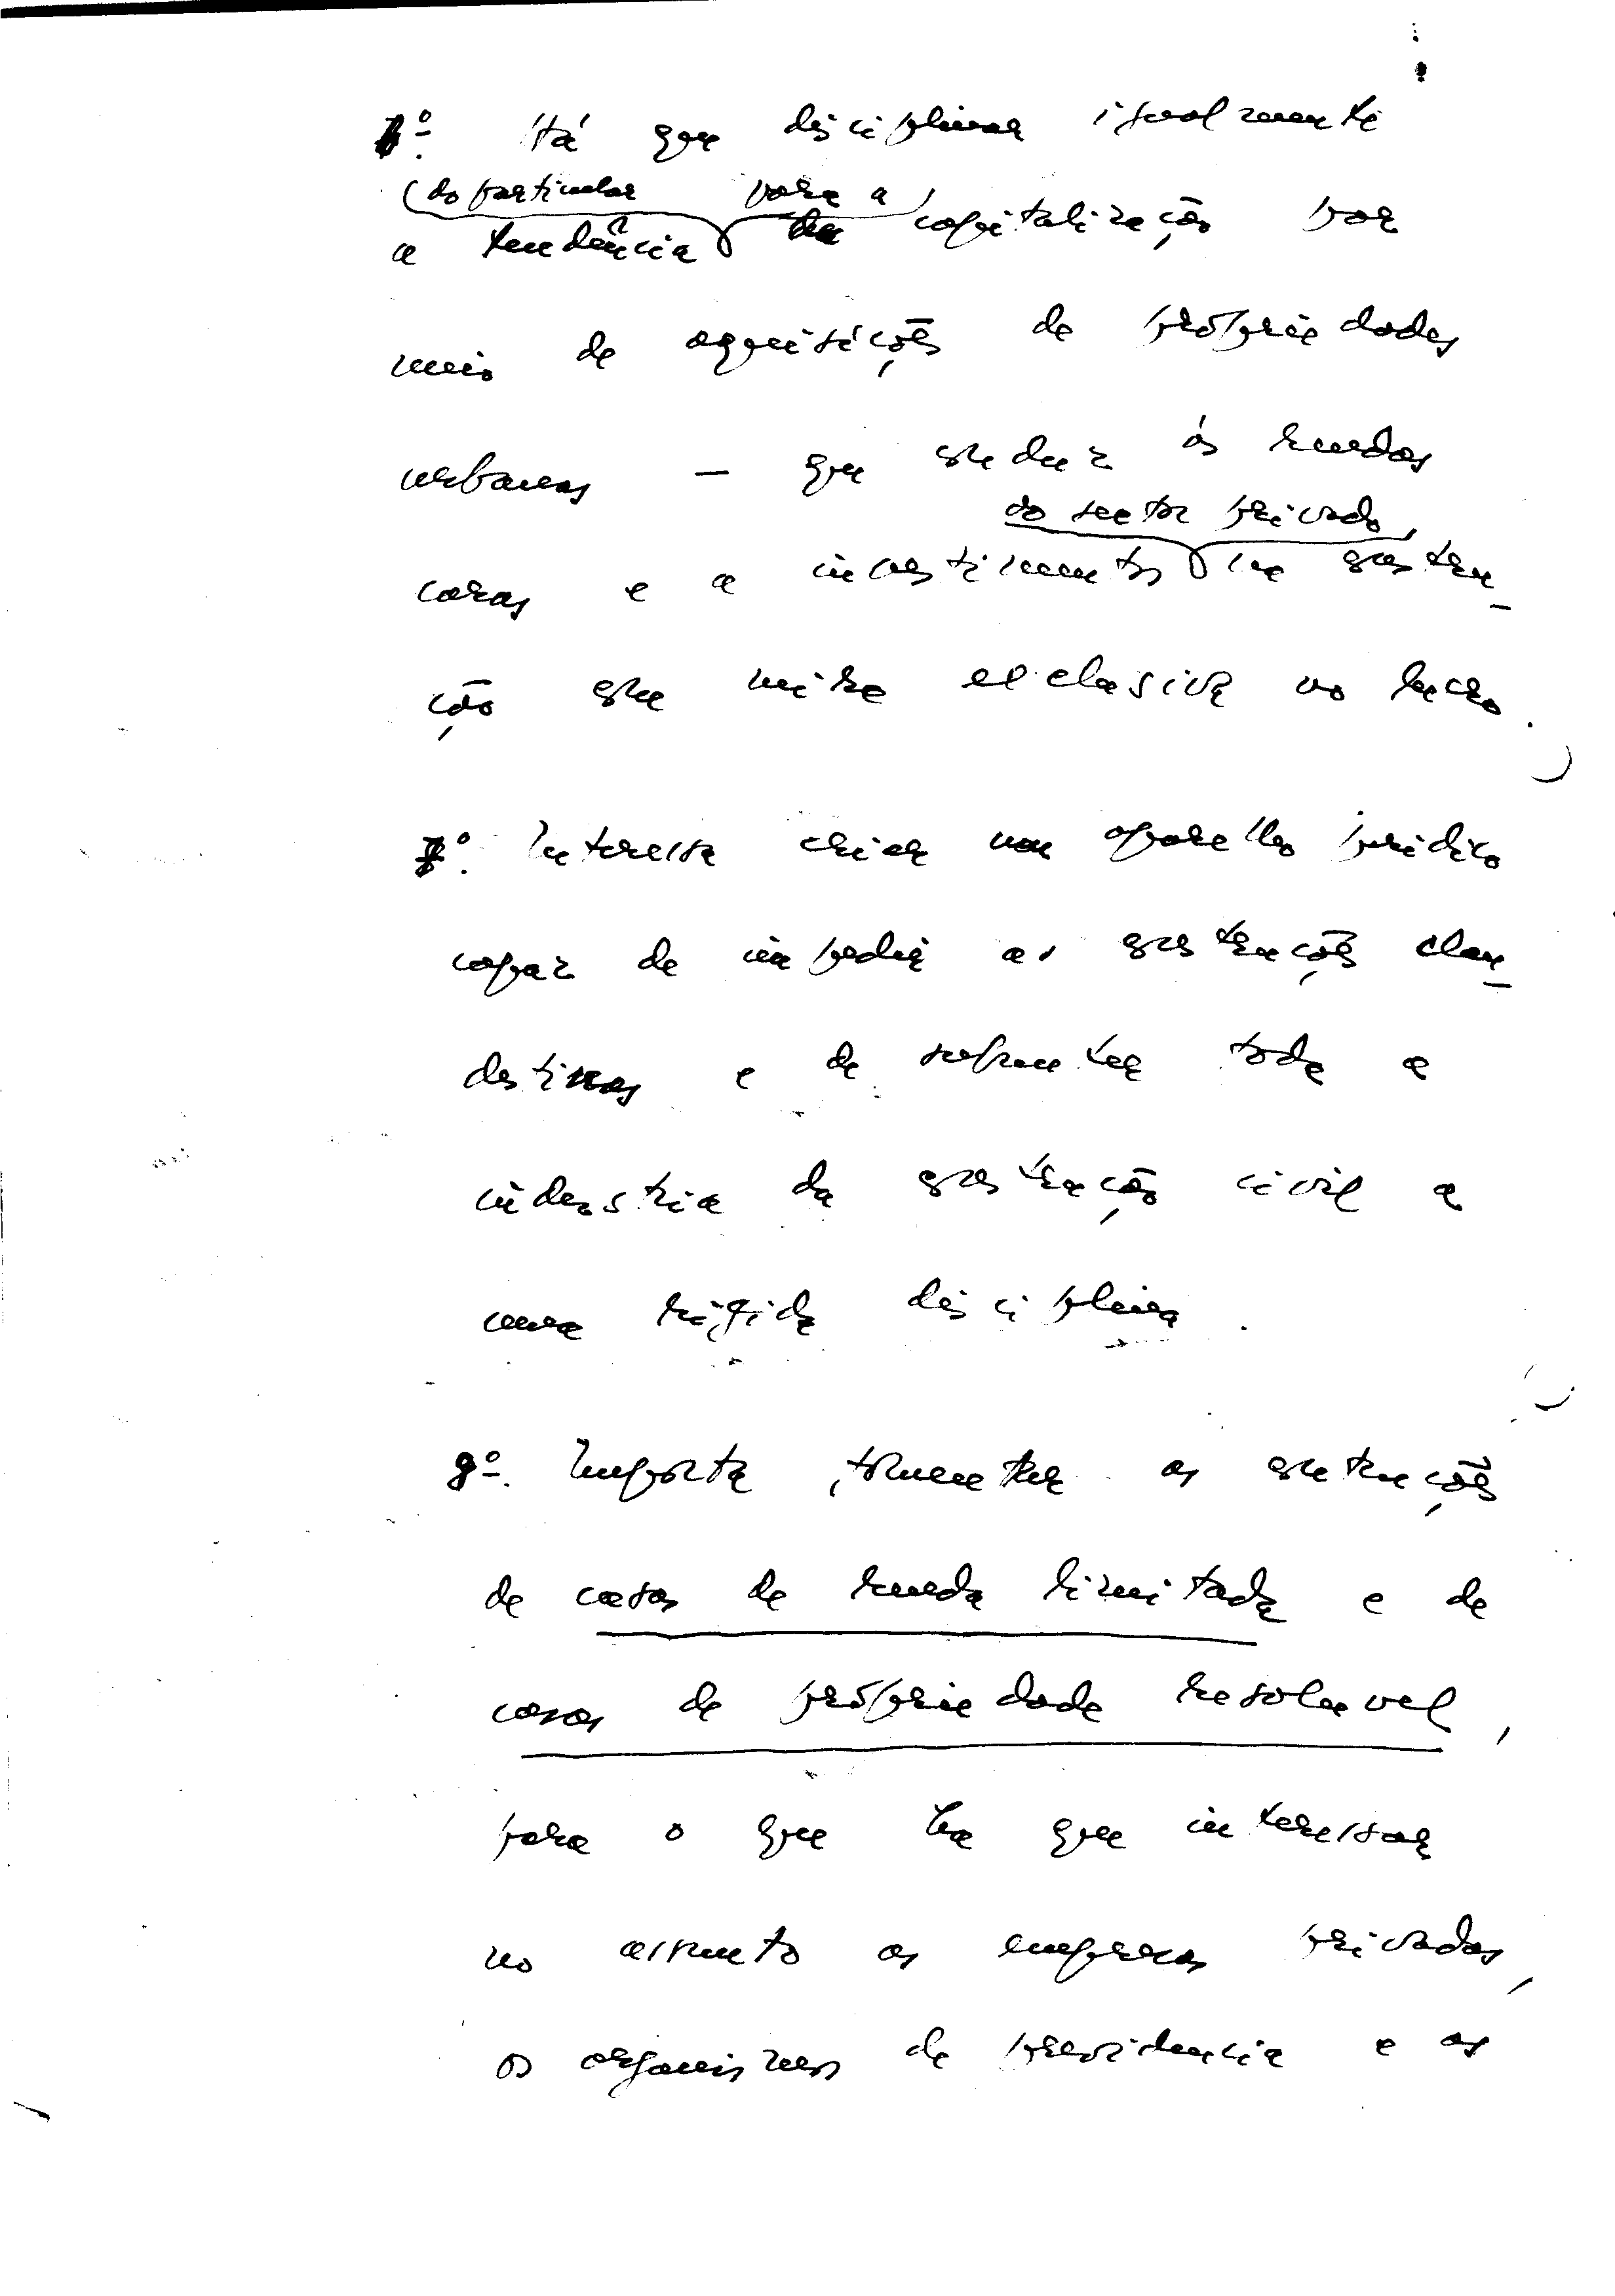 º. Há que disciplinar igualmente
(do particular para a)
a tendência capitalização por
meio de aquisições de própriedades
urbanas — que conduz ás rendas
do sector privado,
caras e a investimentos na constru_
ção que mira exclusiva ao lucro.
7º. Interessa criar um aparelho juridico
capaz de impedir as construções clan_
destinas e de submeter toda a
industria da construção civil a
uma rigida disciplina.
8º. Importa, fomentar as construções
de casas de renda limitada e de
casas de própriedade resoluvel,
para o que ha que interessar
no assunto as empresas privadas,
os organismos de previdencia e as